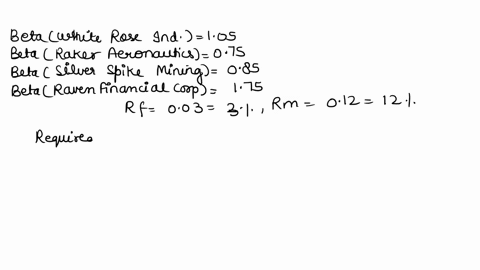 Beta (White Rose Ind.) = 1.05
Beta (Raker Aeronautics) = 0.75
Beta (Silver Spike Mining) = 0.85
Beta (Raven Financial Corp) = 1.75
Rf = 0.03 = 3%, Rm = 0.12 = 12%
Requires